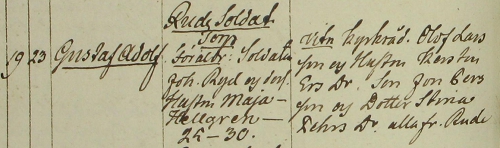 Rude Soldat
Torp
19 23 Gustaf Adolf. Föräldr: Soldaten
Joh. Ryd och dess
Hustru Maja
Hellgren
25-30.
vitn Kyrkvärd. Olof Lars
son och Hustru Kersten
Ers Dr. Son Jon Lars
son och Dotter Stina
Dr. alla fr. Rude